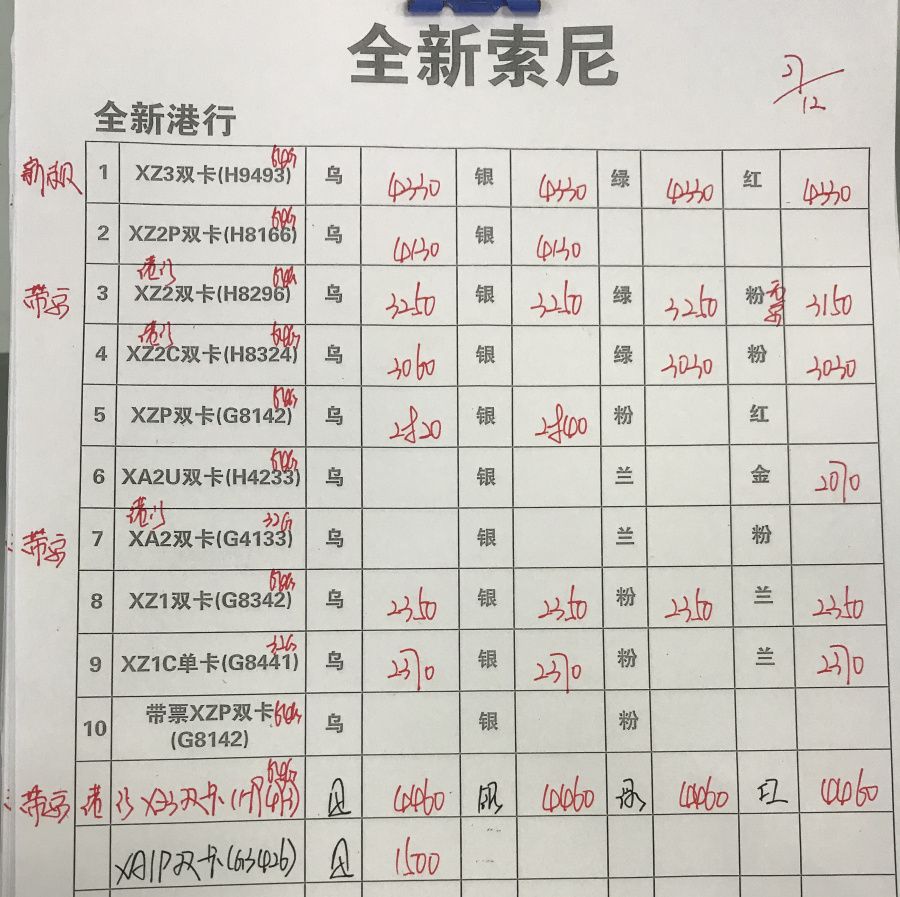 全新索尼
27/12
全新港行
64G
1 XZ3双卡(H9493) 乌 4330 银 4330 绿 4330 红 4330
64G
2 XZ2P双卡(H8166) 乌 4130 银 4130
港行 64G
带票 3 XZ2双卡(H8296) 乌 3250 银 3250 绿 3250 粉 无票 3150
港行 64G
4 XZ2C双卡(H8324) 乌 3060 银 绿 3030 粉 3030
64G
5 XZP双卡(G8142) 乌 2820 银 2840 粉 红
64G
6 XA2U双卡(H4233) 乌 银 兰 金 2070
港行 32G
带票 7 XA2双卡(G4133) 乌 银 兰 粉
64G
8 XZ1双卡(G8342) 乌 2350 银 2350 粉 2350 兰 2350
32G
9 XZ1C单卡(G8441) 乌 2370 银 2370 粉 兰 2370
10 带票XZP双卡 64G 乌 银 粉
(G8142)
64G
带票 港行 XZ3双卡(H9493) 4460 银 4460 绿 4460 红 4460
XA1P双卡(G3426) 1500